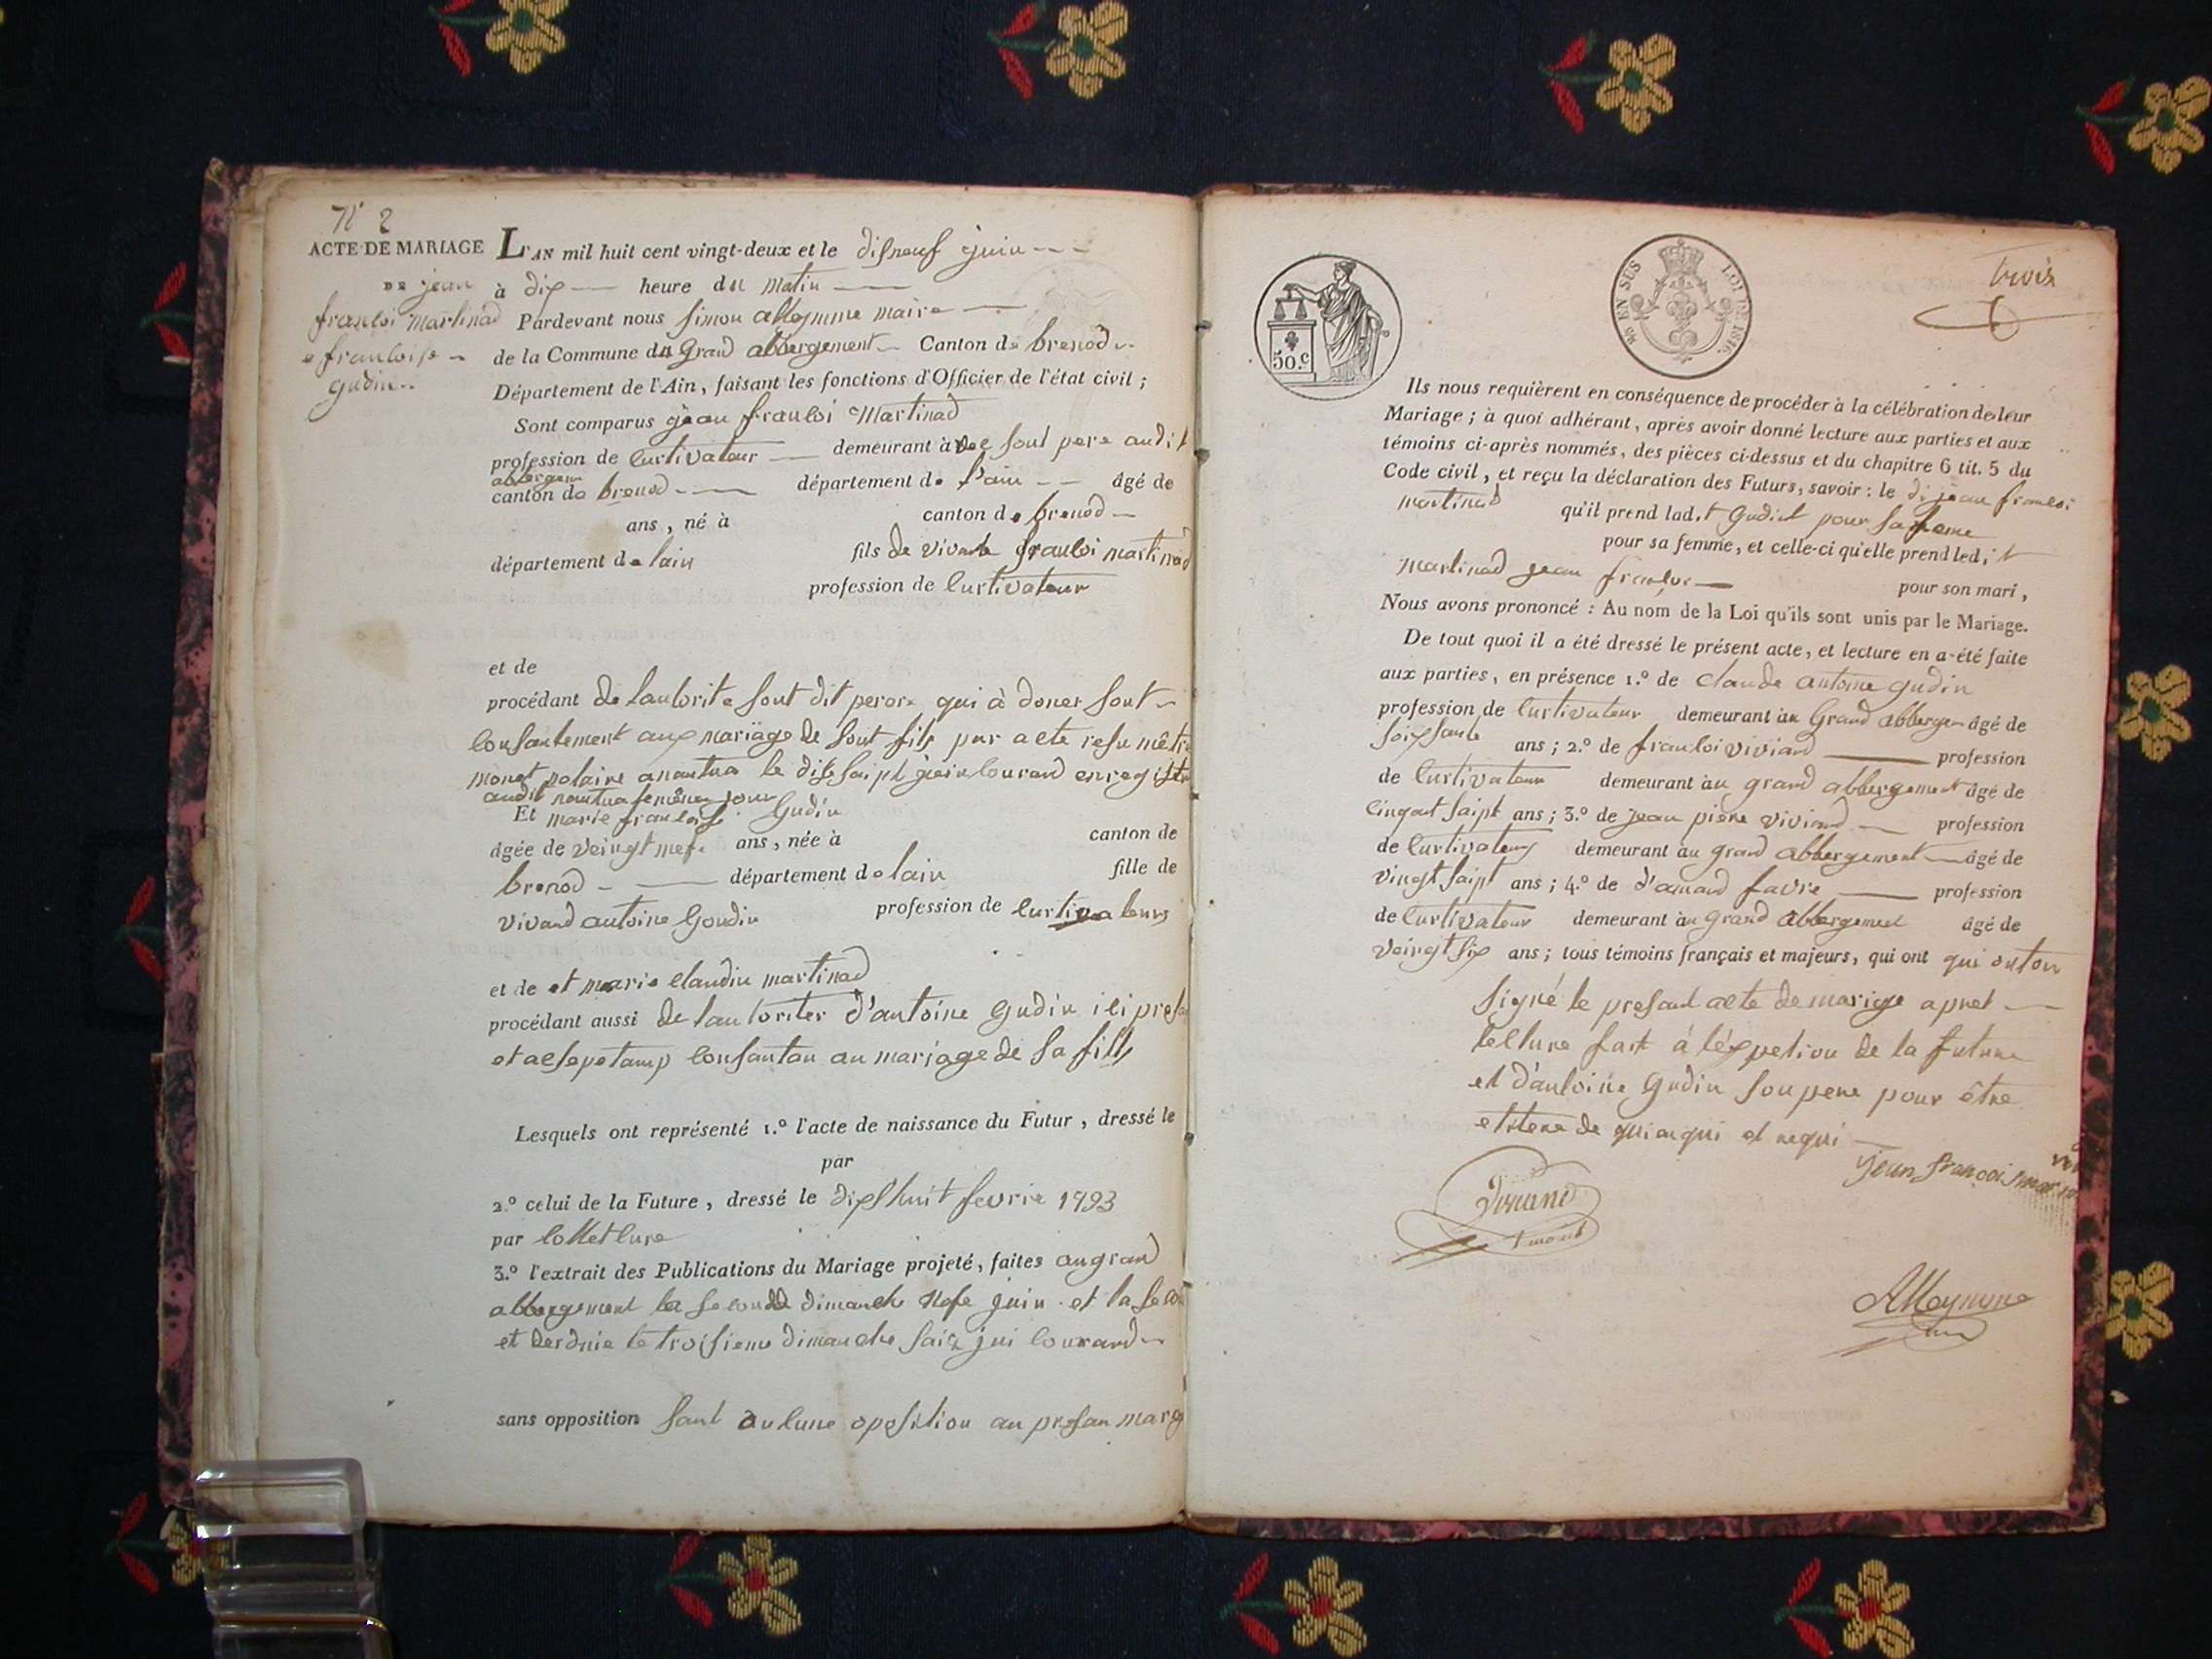 N° 2
ACTE DE MARIAGE
DE jean
franloi martinad
e franloise
gudin
L'AN mil huit cent vingt-deux et le disneuf juin
à dix heure du matin
Pardevant nous simon alleymme maire
de la Commune du Grand abbergement Canton de brenod
Département de l'Ain, faisant les fonctions d'Officier de l'état civil ;
Sont comparus jean franloi Martinad
profession de lurtivateur demeurant à vec sout pere audit
abbergem
canton de brenod département de l'ain âgé de
ans, né à canton de brenod
département de lain fils de vivant franloi martinad
profession de lurtivateur
et de
procédant de lautorite sout dit perore qui à doner sout
consantement aux mariage de sout fils par acte resu mêtre
monet notaire anantua le dis saipt juin lourand enregistre
audit nantua le même jour
Et marie franloise Gudin
âgée de veingt nefe ans, née à canton de
brenod département de lain fille de
vivand antoine Goudin profession de lurtivateur
et de et marie claudin martinad
procédant aussi de lautoriter d'antoine gudin ici presa
et consantan au mariage de sa fille
Lesquels ont représenté 1.° l'acte de naissance du Futur, dressé le
par
2.° celui de la Future, dressé le dixs huit fevrie 1793
par
3.° l'extrait des Publications du Mariage projeté, faites au grand
abbergement la seconde dimanche nefe juin et la secon
et derdnie le troisieme dimanche saize jui lourand
sans opposition sant aulune oposition au presan marg
50.c
EN SUS LOI DE 1816.
trois
Ils nous requièrent en conséquence de procéder à la célébration de leur
Mariage ; à quoi adhérant, après avoir donné lecture aux parties et aux
témoins ci-après nommés, des pièces ci-dessus et du chapitre 6 tit. 5 du
Code civil, et reçu la déclaration des Futurs, savoir : le di jean franloi
martinad qu'il prend lad.t Gudint pour sa feme
pour sa femme, et celle-ci qu'elle prend led.it
martinad jean franloi pour son mari,
Nous avons prononcé : Au nom de la Loi qu'ils sont unis par le Mariage.
De tout quoi il a été dressé le présent acte, et lecture en a été faite
aux parties, en présence 1.° de claude antoine gudin
profession de lurtivateur demeurant au Grand abbergem âgé de
soixsante ans ; 2.° de franloi viviand profession
de lurtivateur demeurant àu grand abbergement âgé de
cinqant saipt ans ; 3.° de jean piere viviand profession
de lurtivateur demeurant àu grand abbergement âgé de
vingt saipt ans ; 4.° de d'amand favre profession
de lurtivateur demeurant àu grand abbergement âgé de
veingt six ans ; tous témoins français et majeurs, qui ont qui onton
signé le presant acte de mariage apret
lecture fait à l'éxpetion de la future
et d'antoine gudin sou pere pour être
de qui et requi
jean francois mar
Alleymme